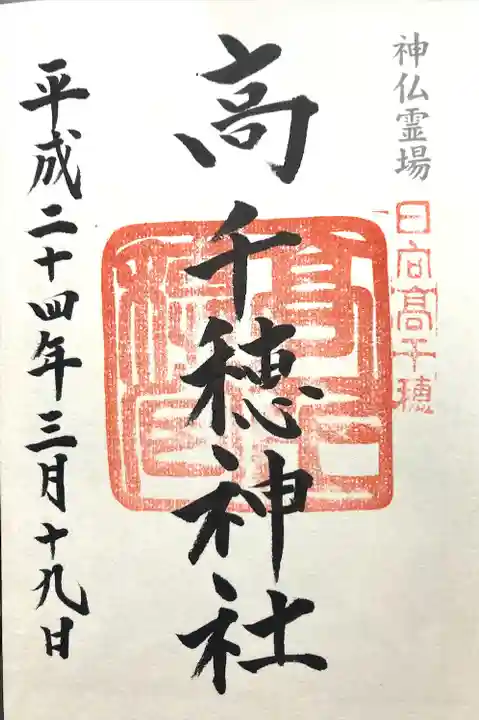 神仏霊場
日向高千穂
高千穂神社
平成二十四年三月十九日